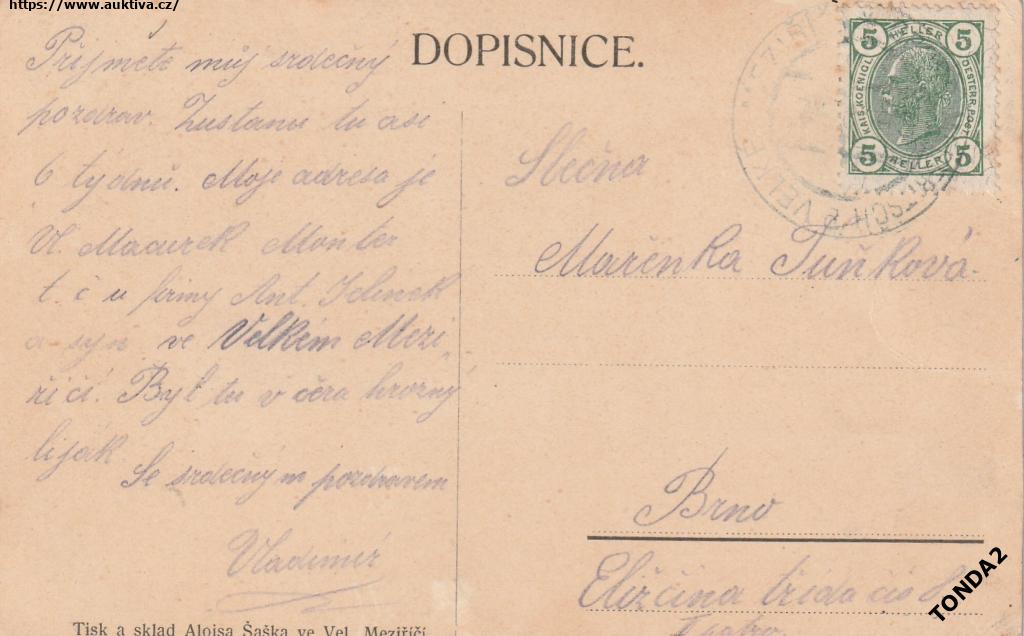 https://www.auktiva.cz/
DOPISNICE.
Přijměte můj srdečný
pozdrav. Zustanu tu asi
6 týdnů. Moje adresa je
Vl. Macurek Monter
t. č u firmy Ant. Jelinek
a syn ve Velkém Mezi
řičí. Byl tu v čera hrozný
liják
Se srdečným pozdravem
Vladimír
Tisk a sklad Aloisa Šaška ve Vel. Meziříčí.
5 HELLER 5
KAIS. KOENIGL. OESTERR. POST
5 HELLER 5
VELKÉ
Slečna
Mařenka Tuňková
Brno
třída čís
TONDA2